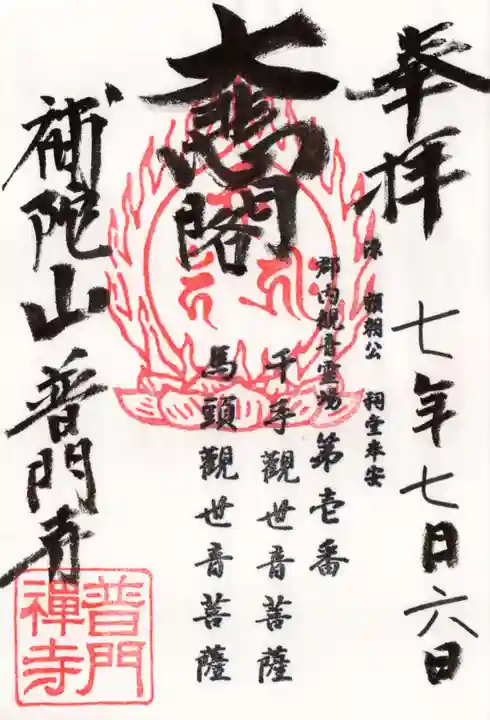 奉拝
七年七月六日
源 頼朝公 祠堂奉安
郡内観音霊場 第壱番
千手觀世音菩薩
馬頭觀世音菩薩
大悲閣
補陀山 普門寺
普門
禪寺